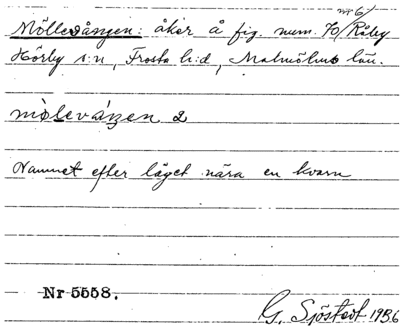 nr 6/
Möllevången: åker å fig. num. 70/ Råby
Hörby s:n, Frosta h:d, Malmöhus län.
møleváŋen 2
Namnet efter läget nära en kvarn
Nr 5558.
G. Sjöstedt 1936